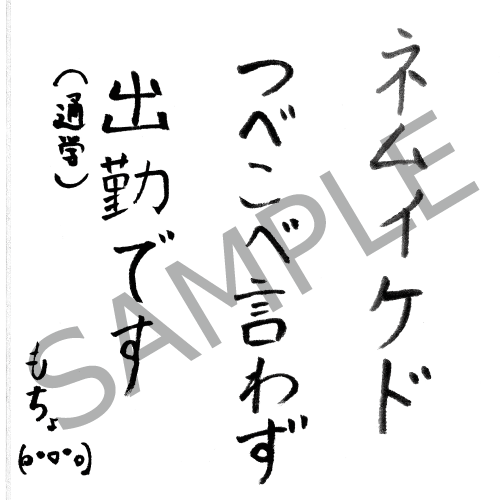 ネムイケド
つべこべ言わず
出勤です
(通学)
もちょ
(o•▽•o)
SAMPLE